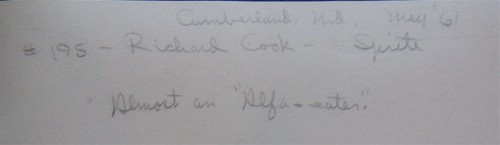 Cumberland, Md. May '61
# 195 - Richard Cook - Sprite
"Almost an "Alfa-eater."